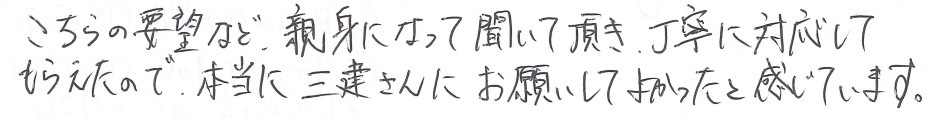 こちらの要望など、親身になって聞いて頂き、丁寧に対応して
もらえたので、本当に三建さんにお願いしてよかったと感じています。